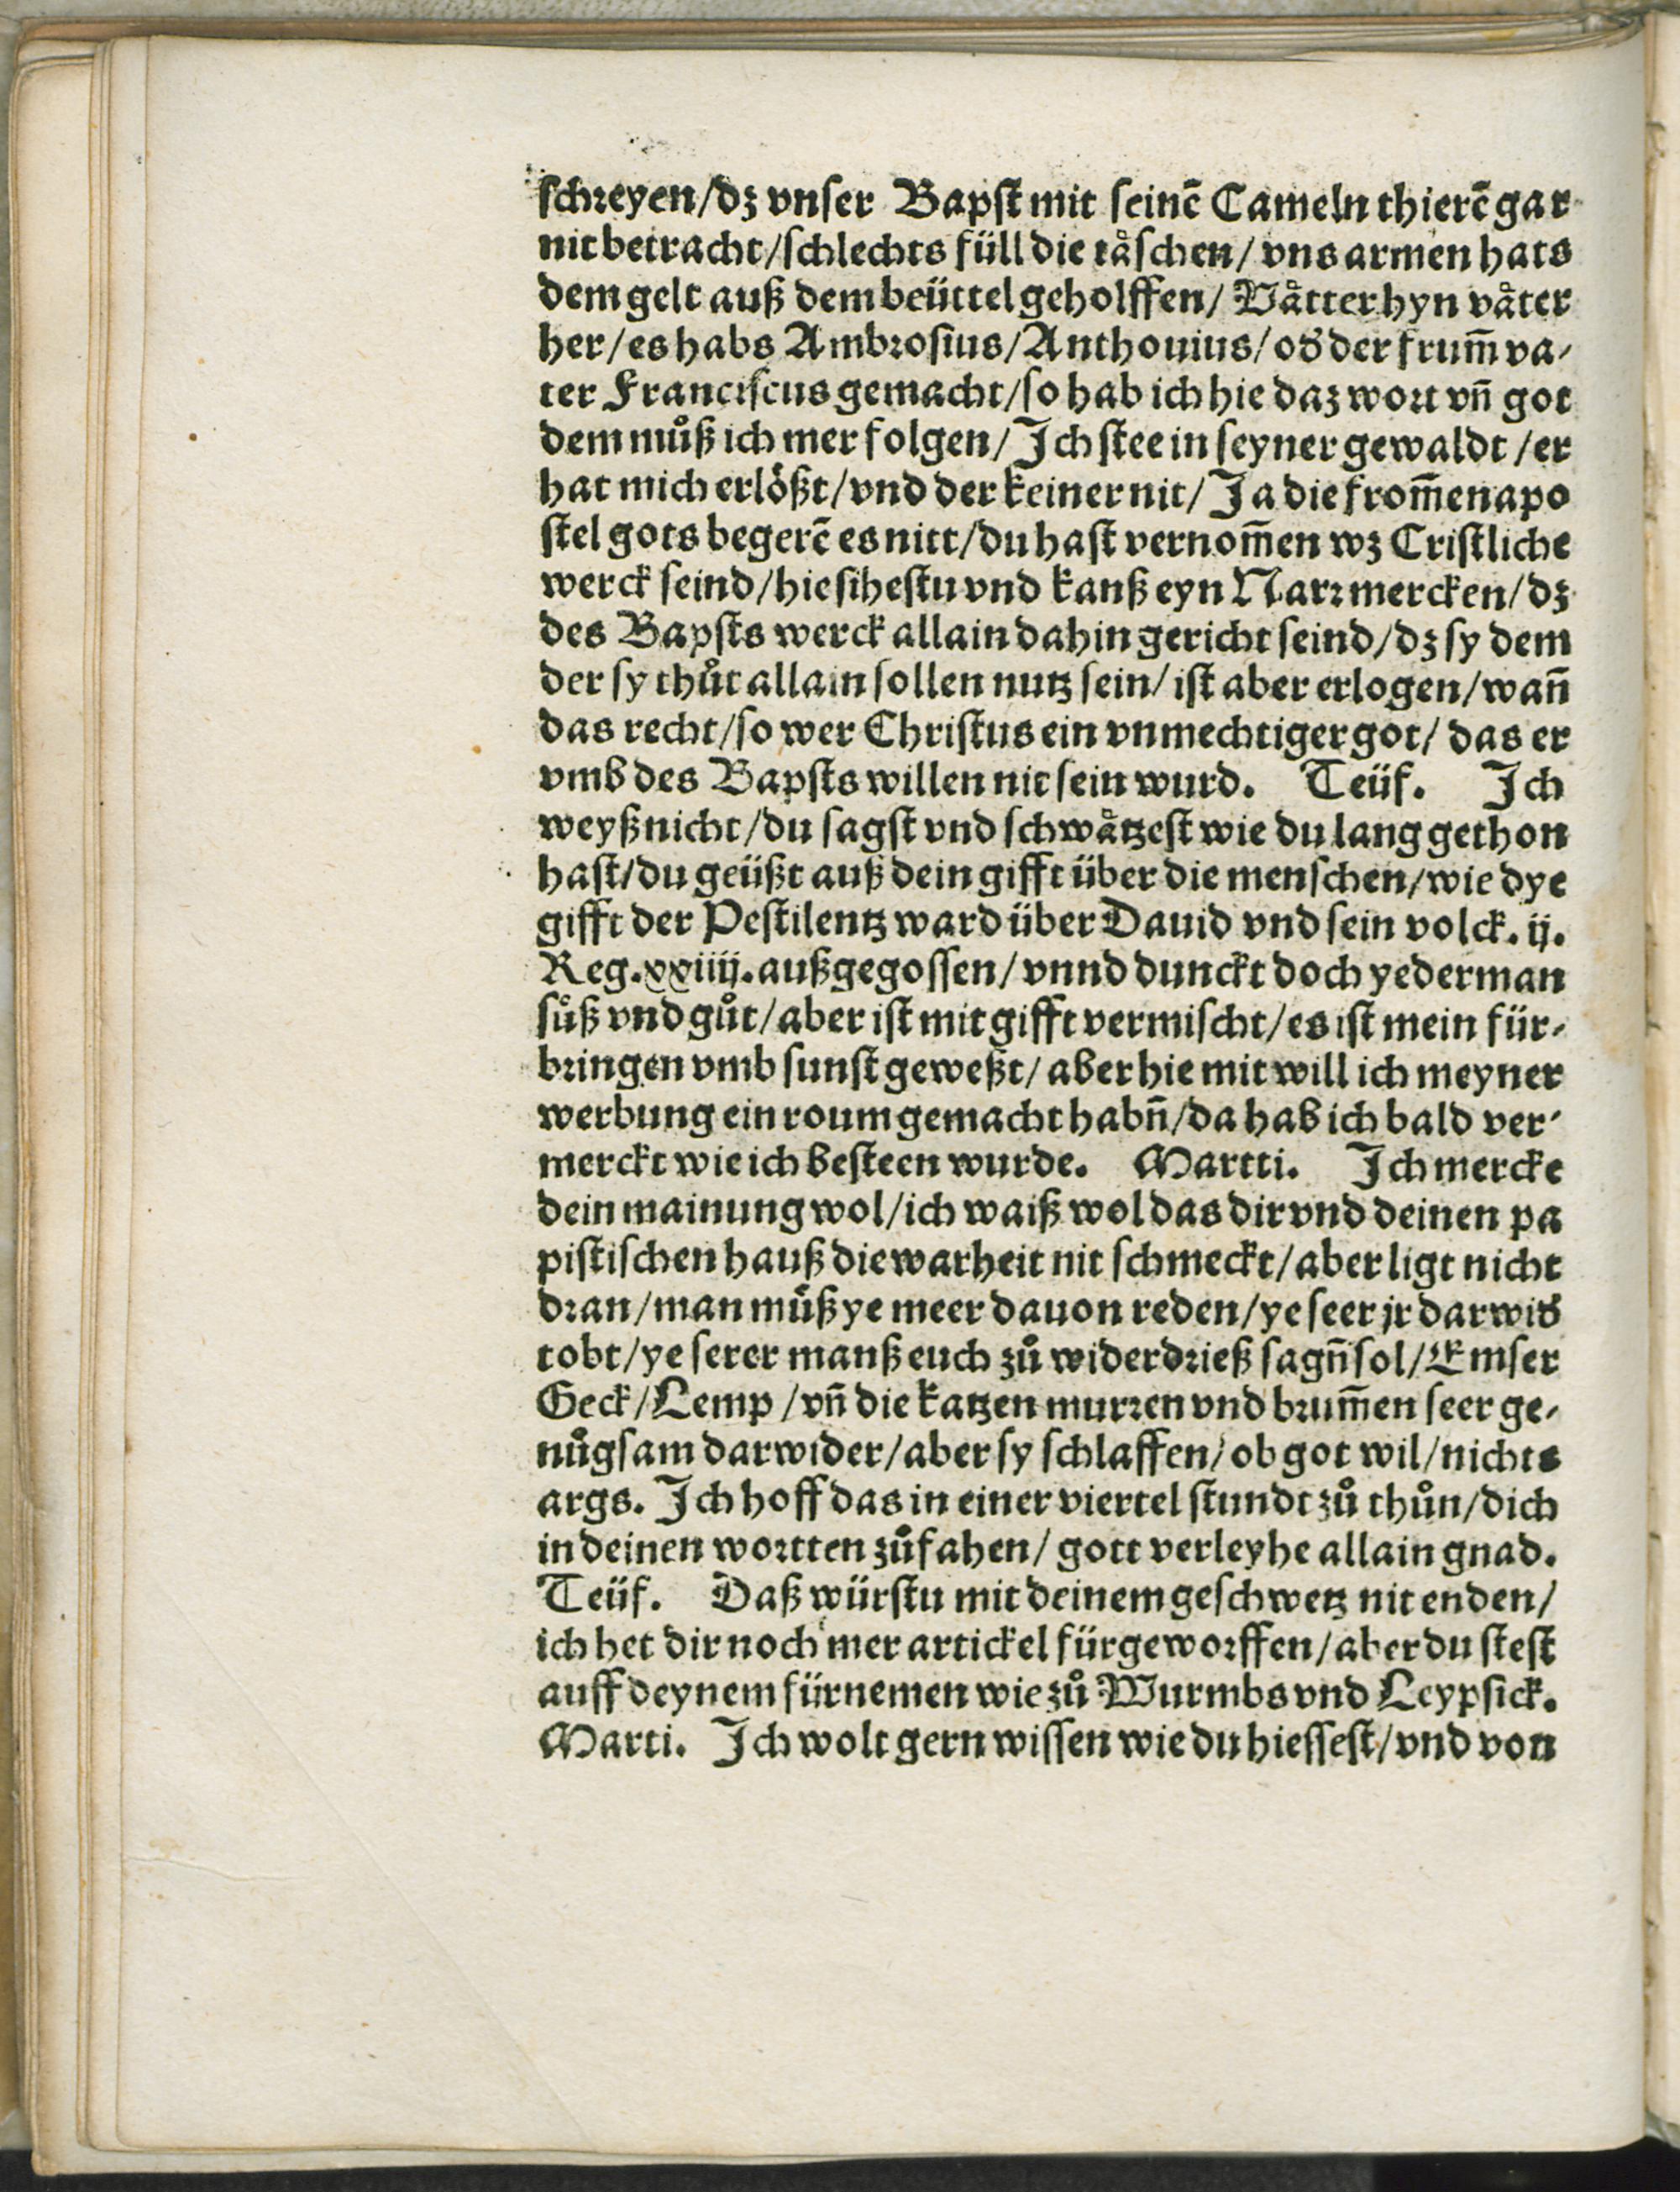 ſchreyen/dz vnſer Bapſt mit ſeinē Cameln thierē gar
nit betracht/ſchlechts füll die taͤſchen/ vns armen hats
dem gelt auß dem beüttel geholffen/ Vaͤtter hyn vaͤter
her/es habs Ambroſius/Anthouius/od' der frum̄ va⸗
ter Franciſcus gemacht/ſo hab ich hie daz wort vn̄ got
dem můß ich mer folgen/ Ich ſtee in ſeyner gewaldt /er
hat mich erloͤßt/vnd der keiner nit/ Ja die from̄en apo
ſtel gots begerē es nitt/du haſt vernom̄en wz Criſtliche
werck ſeind/hie ſiheſtu vnd kanß eyn Narr mercken/dz
des Bapſts werck allain dahin gericht ſeind/dz ſy dem
der ſy thůt allain ſollen nutz ſein/ iſt aber erlogen/wan̄
das recht/ſo wer Chriſtus ein vnmechtiger got/ das er
vmb des Bapſts willen nit ſein wurd. Teüf. Ich
weyß nicht/du ſagſt vnd ſchwaͤtzeſt wie du lang gethon
haſt/du geüßt auß dein gifft über die menſchen/wie dye
gifft der Peſtilentz ward über Dauid vnd ſein volck. ij.
Reg.xxiiij.außgegoſſen/vnnd dunckt doch yederman
ſůß vnd gůt/aber iſt mit gifft vermiſcht/es iſt mein für⸗
bringen vmb ſunſt geweßt/ aber hie mit will ich meyner
werbung ein roum gemacht habn̄/da hab ich bald ver⸗
merckt wie ich beſteen wurde. Martti. Ich mercke
dein mainung wol/ich waiß wol das dir vnd deinen pa
piſtiſchen hauß die warheit nit ſchmeckt/aber ligt nicht
dran/man můß ye meer dauon reden/ye ſeer jr darwid'
tobt/ye ſerer manß euch zů widerdrieß ſagn̄ ſol/Emſer
Geck/Lemp/vn̄ die katzen murren vnd brum̄en ſeer ge⸗
nůgſam darwider/aber ſy ſchlaffen/ob got wil/nichts
args. Ich hoff das in einer viertel ſtundt zů thůn/dich
in deinen wortten zůfahen/ gott verleyhe allain gnad.
Teüf. Daß würſtu mit deinem geſchwetz nit enden/
ich het dir noch mer artickel fürgeworffen/aber du ſteſt
auff deynem fürnemen wie zů Wurmbs vnd Leypſick.
Marti. Ich wolt gern wiſſen wie du hieſſeſt/vnd von